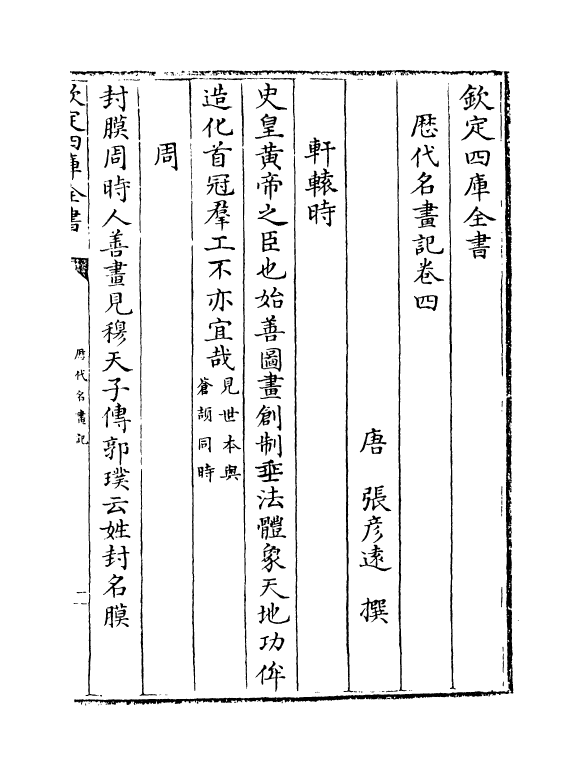 欽定四庫全書
歴代名畫記卷四
唐 張彦遠 撰
軒轅時
史皇黃帝之臣也始善圖畫創制垂法體象天地功侔
造化首冠羣工不亦宜哉見世本與
蒼頡同時
周
封膜周時人善畫見穆天子傳郭璞云姓封名膜
欽定四庫全書
歷代名畫記